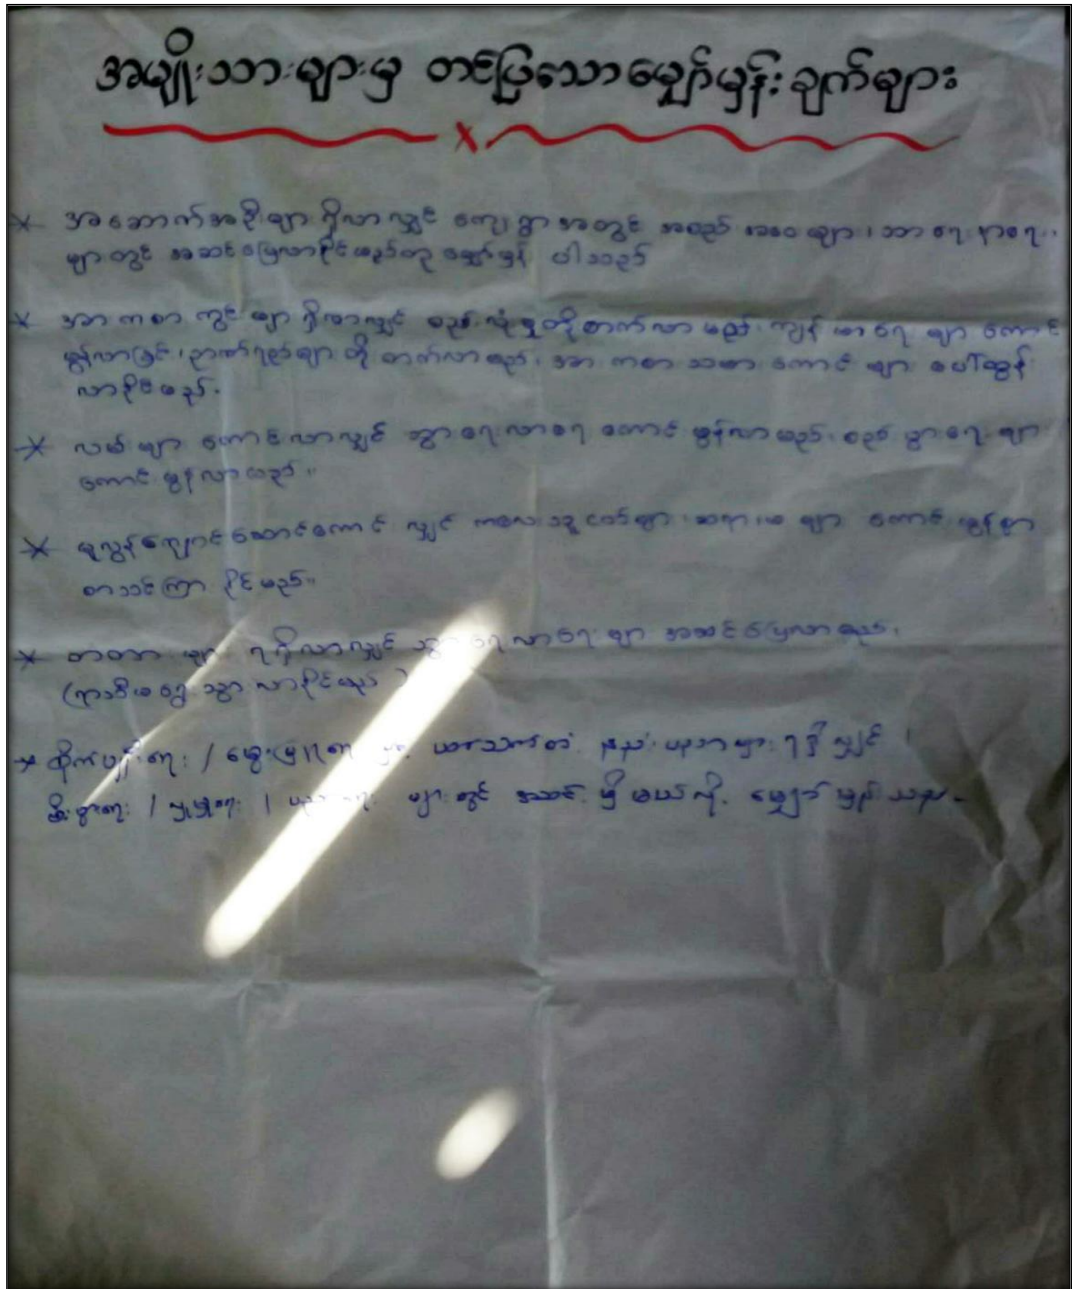 အမျိုးသားများမှ တင်ပြသောမျှော်မှန်းချက်များ
* အဆောက်အဦးများ ရှိလာလျှင် ကျေးရွာအတွင်း အစည်းအဝေးများ၊ သာရေး နာရေး
များတွင် အဆင်ပြေလာနိုင်မည်ဟု မျှော်မှန်းပါသည်
* အားကစားကွင်းများ ရှိလာလျှင် စည်းလုံးမှုတိုးတက်လာမည်၊ ကျန်းမာရေးများ ကောင်း
မွန်လာခြင်း၊ ဉာဏ်ရည်များ တိုးတက်လာမည်၊ အားကစားသမားကောင်းများ ပေါ်ထွန်း
လာနိုင်မည်။
* လမ်းများ ကောင်းလာလျှင် သွားရေးလာရေး ကောင်းမွန်လာမည်၊ စည်းပွားရေးများ
ကောင်းမွန်လာမည်။
* မူလွန်ကျောင်းဆောင်ကောင်းလျှင် ကလေးသူငယ်များ၊ ဆရာမများ ကောင်းမွန်စွာ
စာသင်ကြားနိုင်မည်။
* တံတားများ ရရှိလာလျှင် သွားရေးလာရေးများ အဆင်ပြေလာမည်။
(ရာသီမရွေး သွားလာနိုင်မည်)
* စိုက်ပျိုးရေး / မွေးမြူရေး နည်းပညာများ ရရှိလျှင်
စီးပွားရေး / များတွင် အဆင်ပြေမယ်လို့ မျှော်မှန်းသည်။